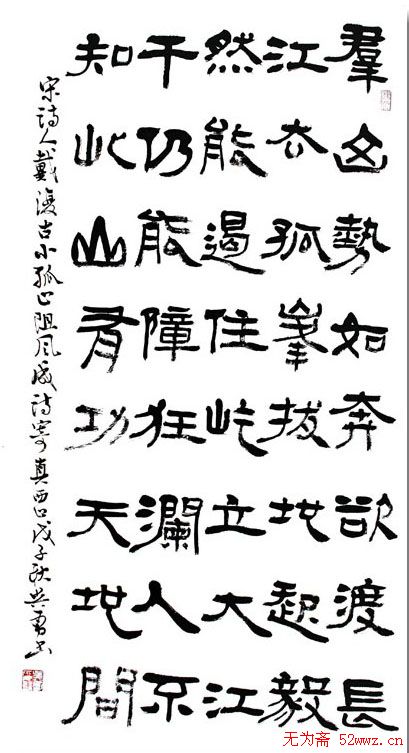 羣山勢如奔欲渡長
江去孤峯拔地起毅
然能遏住屹立大江
干仍能障狂瀾人不
知此山有功天地間
宋詩人戴復古小孤山阻風成詩寄真西山戊子秋
无为斋 52wwz.cn